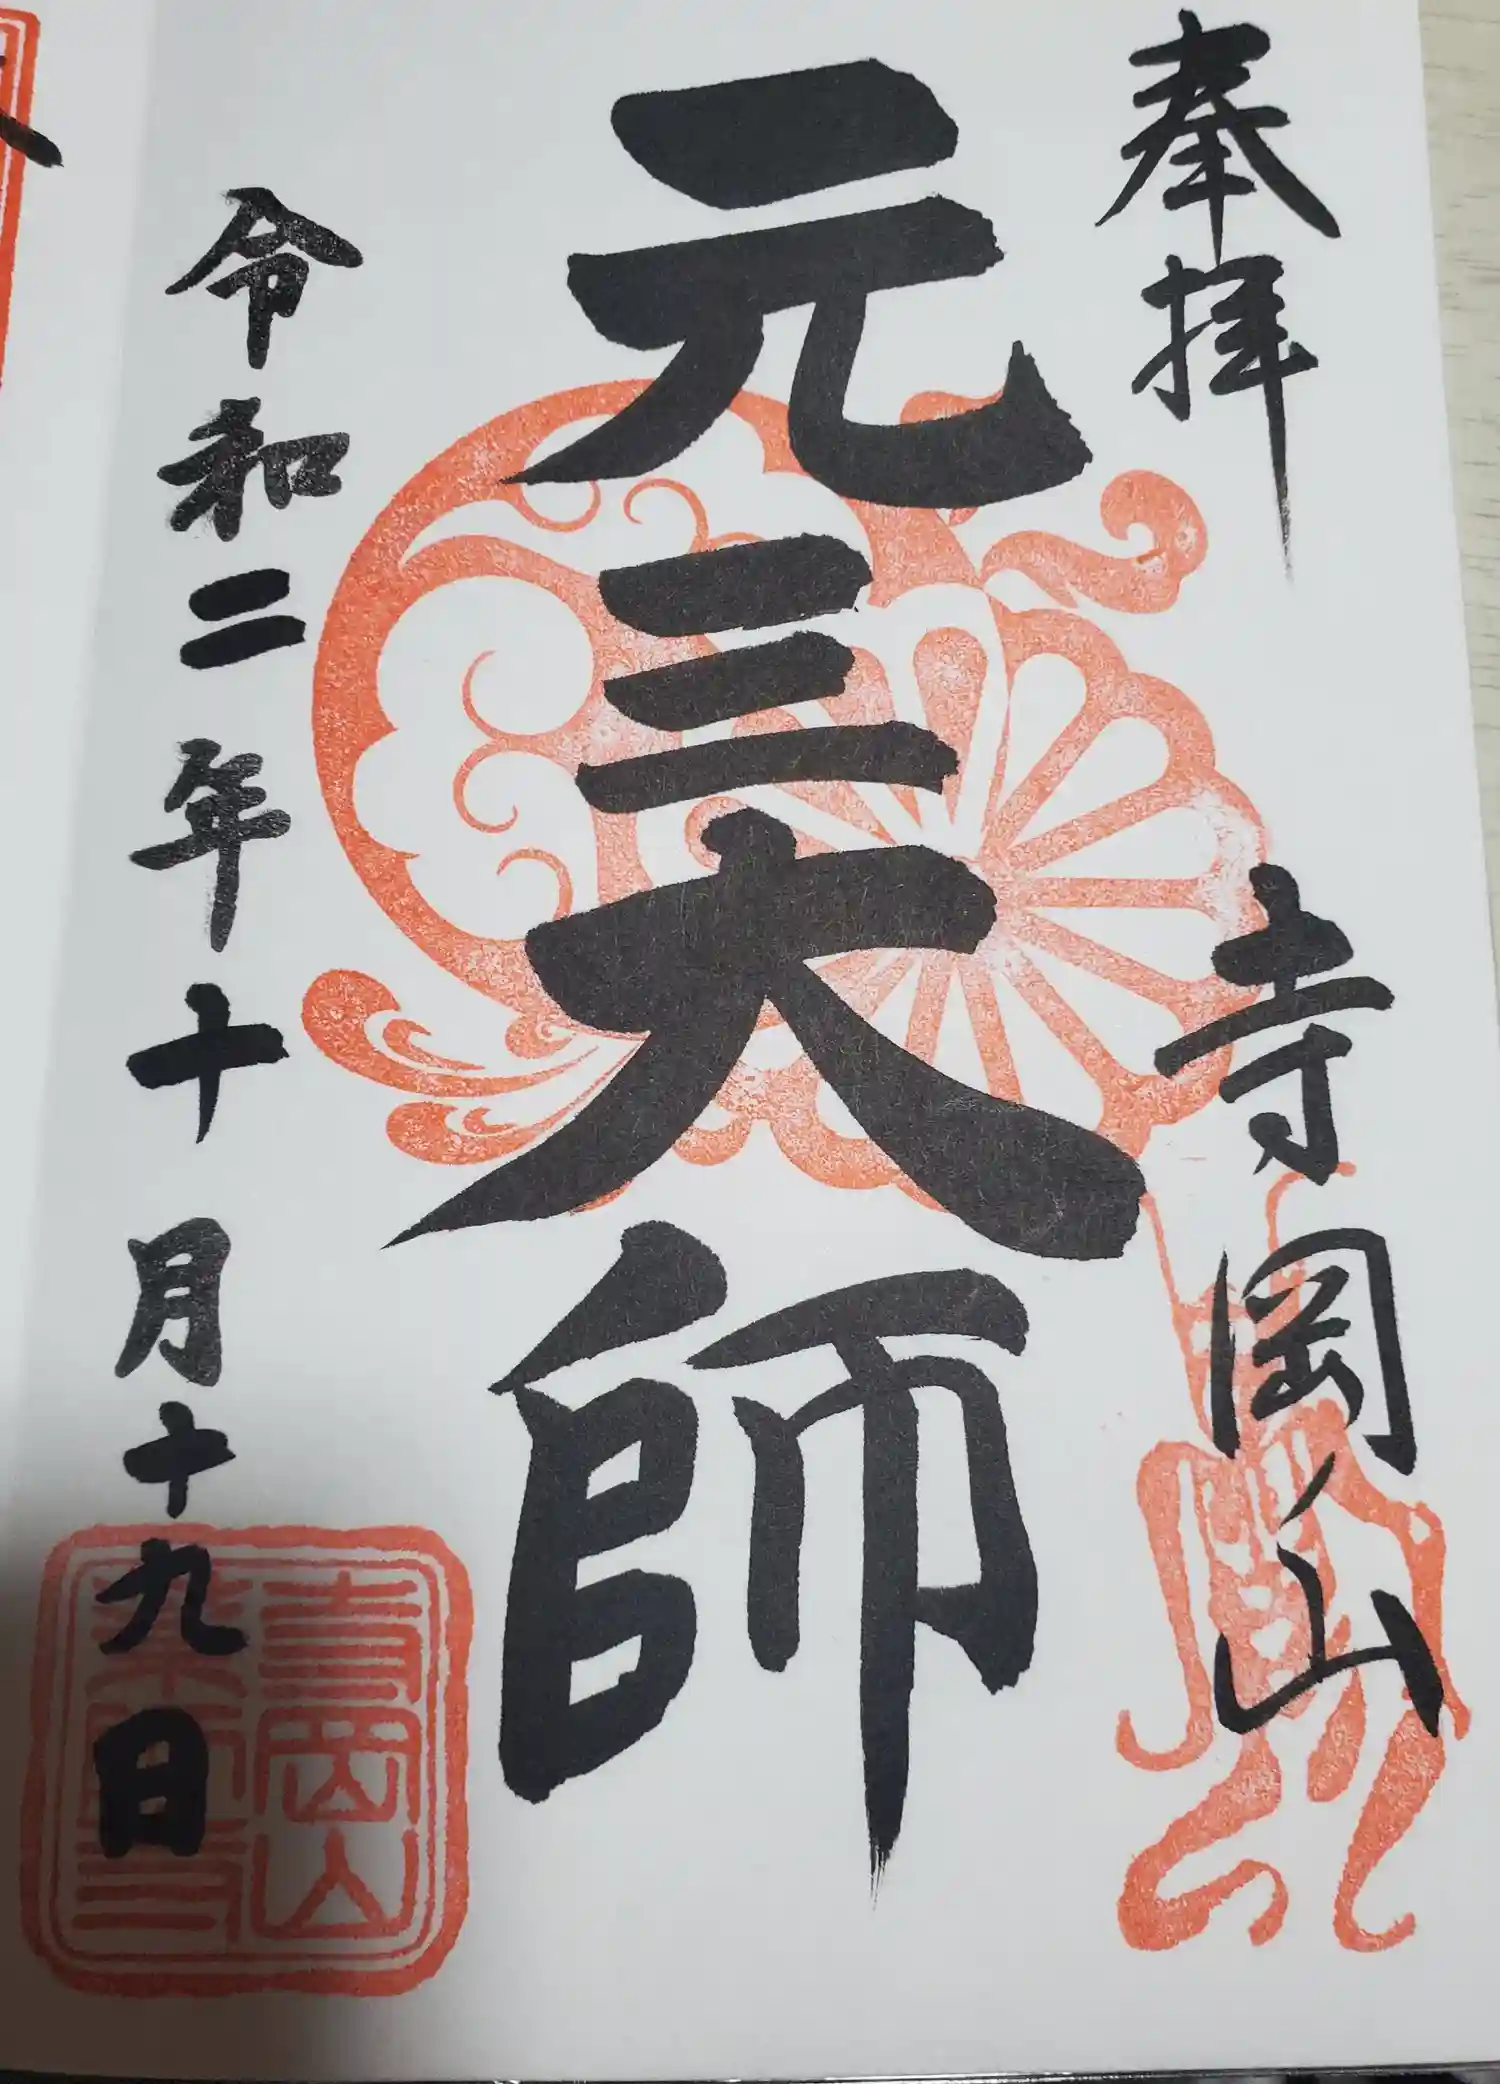 奉拝
寺岡山
元三大師
令和二年十月十九日
寺岡山